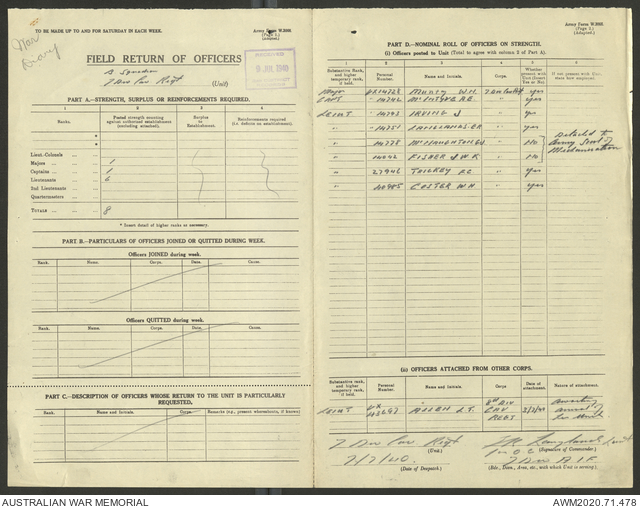 TO BE MADE UP TO AND FOR SATURDAY IN EACH WEEK.
Army Form W.3008.
(Page 1.)
(Adapted.)
War
Diary
FIELD RETURN OF OFFICERS
A Squadron
7 Div Cav Regt (Unit)
RECEIVED
9 JUL 1940
PART A.—STRENGTH, SURPLUS OR REINFORCEMENTS REQUIRED.
1 2 3 4
Ranks. Posted strength mounting against authorised establishment (excluding attached). Surplus to Establishment. Reinforcements required (i.e. deficits on establishment).
*
*
Lieut.-Colonels
Majors 1
Captains 1
Lieutenants 6
2nd Lieutenants
Quartermasters
TOTALS 8
* Insert detail of higher ranks as necessary.
PART B.—PARTICULARS OF OFFICERS JOINED OR QUITTED DURING WEEK.
Officers JOINED during week.
Rank. Name. Corps. Date. Cause.
Officers QUITTED during week.
Rank. Name. Corps. Date. Cause.
PART C.—DESCRIPTION OF OFFICERS WHOSE RETURN TO THE UNIT IS PARTICULARLY REQUESTED.
Rank. Name and Initials. Corps. Remarks (e.g., present whereabouts, if known)
Army Form W.3008.
(Page 2.)
(Adapted.)
PART D.—NOMINAL ROLL OF OFFICERS ON STRENGTH.
(i) Officers posted to Unit (Total to agree with column 2 of Part A).
1 2 3 4 5 6
Substantive Rank, and higher temporary rank, if held. Personal Number. Name and Initials. Corps. Whether present with Unit (Insert Yes or No). If not present with Unit, show how employed.
Major 14728 W.H. 7 Div Cav Regt Yes
Capt " 14742 McIntyre " Yes
Lieut " IRVING J " Yes
" " " Yes
" " 14778 " No Detached to
" " FISHER J.W.K. " No Army School of
" " 27946 " Yes Mechanisation
" " COSTER W.H. " Yes
(ii) OFFICERS ATTACHED FROM OTHER CORPS.
Substantive rank, and higher temporary rank, if held. Personal Number. Name and Initials. Corps Date of attachment. Nature of attachment.
Lieut ALLEN L.T. 8th DIV CAV REGT Awaiting arrival of
7 Div Cav Regt
(Unit.)
7/7/40.
(Date of Despatch)
Lieut
(Signature of Commander)
7 Div A.I.F.
(Bde., Divn., Area, etc., with which Unit is serving.)
AUSTRALIAN WAR MEMORIAL
AWM2020.71.478